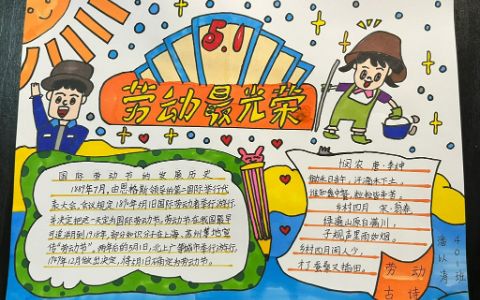 5.1
劳动最光荣
国际劳动节的发展历史
1889年7月,由恩格斯领导的第二国际举行代
表大会,会议规定1890年5月1日国际劳动者举行游行,
并决定把这一天定为国际劳动节,劳动节在我国最早
可追溯到1918年,部分知识分子在上海、苏州等地宣
传"劳动节",两年后的5月1日,北上广等城市举行游行,
1949年12月做出决定,将5月1日确定为劳动节。
悯农 唐·李绅
锄禾日当午,汗滴禾下土。
谁知盘中餐,粒粒皆辛苦。
乡村四月 宋·翁卷
绿遍山原白满川,
子规声里雨如烟。
乡村四月闲人少,
才了蚕桑又插田。
劳动
古诗
401班